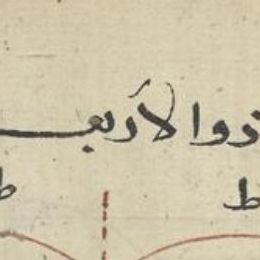 ذوا الأربعـ
ط ط